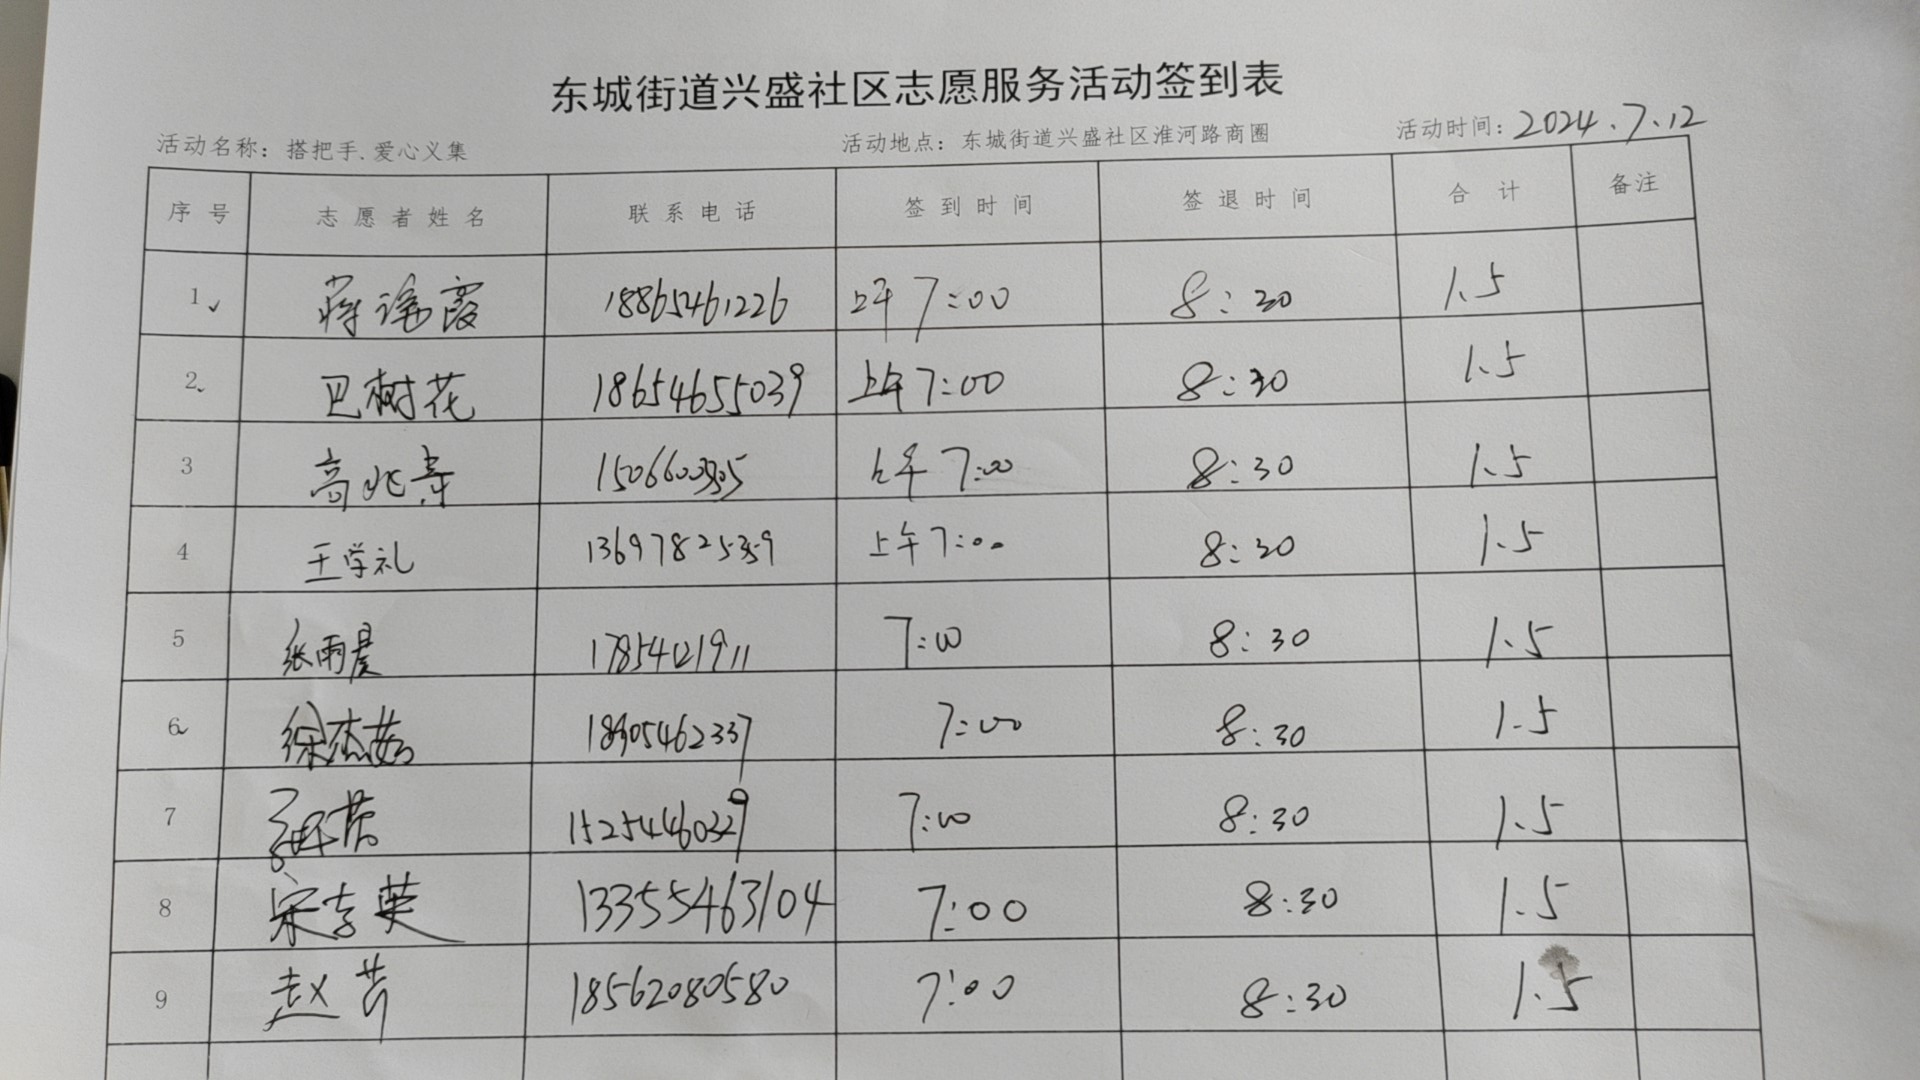 东城街道兴盛社区志愿服务活动签到表
活动名称：搭把手、爱心义集 活动地点：东城街道兴盛社区淮河路商圈 活动时间：2024.7.12
序号 志愿者姓名 联系电话 签到时间 签退时间 合计 备注
1 18865461226 上午7:00 8:30 1.5
2 巴树花 18654655039 上午7:00 8:30 1.5
3 高兆寿 上午7:00 8:30 1.5
4 王学礼 13697825359 上午7:00 8:30 1.5
5 张雨晨 17854121911 7:00 8:30 1.5
6 徐杰茹 18905462337 7:00 8:30 1.5
7 15254460329 7:00 8:30 1.5
8 宋李英 13355463104 7:00 8:30 1.5
9 赵芸 18562080580 7:00 8:30 1.5